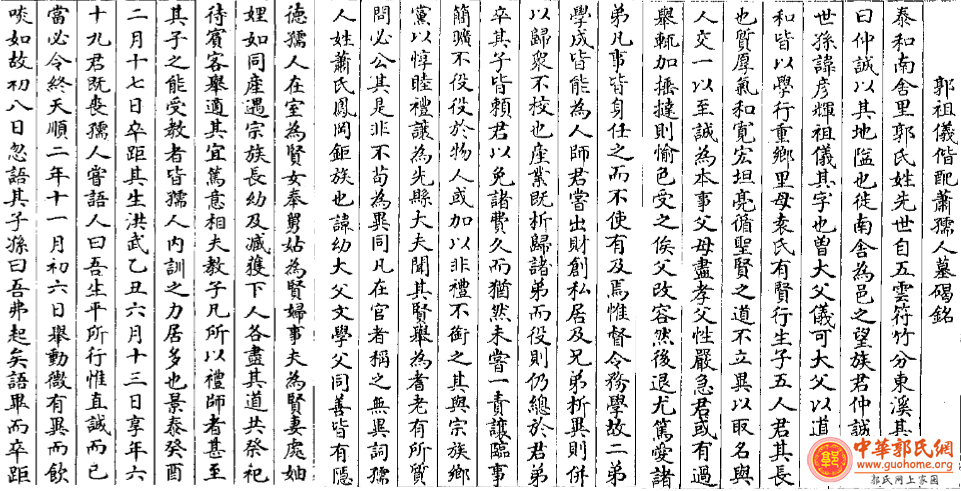 郭祖儀偕配蕭孺人墓碣銘
泰和南舍里郭氏姓先世自五雲符竹分東溪其
曰仲誠以其地隘也徙南舍為邑之望族君仲誠
世孫諱彦輝祖儀其字也曽大父儀可大父以道
和皆以學行重鄉里母袁氏有賢行生子五人君其長
也質厚氣和寬宏坦亮循聖賢之道不立異以取名與
人交一以至誠為本事父母盡孝父性嚴急君或有過
舉輒加捶撻則愉色受之俟父改容然後退尤篤愛諸
弟凡事皆身任之而不使有及焉惟督令務學故二弟
學成皆能為人師君嘗出財創私居及兄弟析異則併
以歸衆不校也産業既析歸諸弟而役則仍總於君弟
卒其子皆頼君以免諸費久而猶然未嘗一責讓臨事
簡曠不役役於物人或加以非禮不銜之其與宗族鄉
黨以惇睦禮讓為先縣大夫聞其賢舉為耆老有所質
問必公其是非不苟為異同凡在官者稱之無異詞孺
人姓蕭氏鳳岡鉅族也諱幼大父文學父同善皆有隱
德孺人在室為賢女奉舅姑為賢婦事夫為賢妻處妯
娌如同産遇宗族長幼及臧獲下人各盡其道共祭祀
待賓客舉適其宜篤意相夫教子凡所以禮師者甚至
其子之能受教者皆孺人内訓之力居多也景泰癸酉
二月十七日卒距其生洪武乙丑六月十三日享年六
十九君既喪孺人嘗語人曰吾生平所行惟直誠而已
當必令終天順二年十一月初六日舉動微有異而飲
啖如故初八日忽語其子孫曰吾弗起矣語畢而卒距
郭
中華郭氏網
www.guohome.org
郭氏網上家園